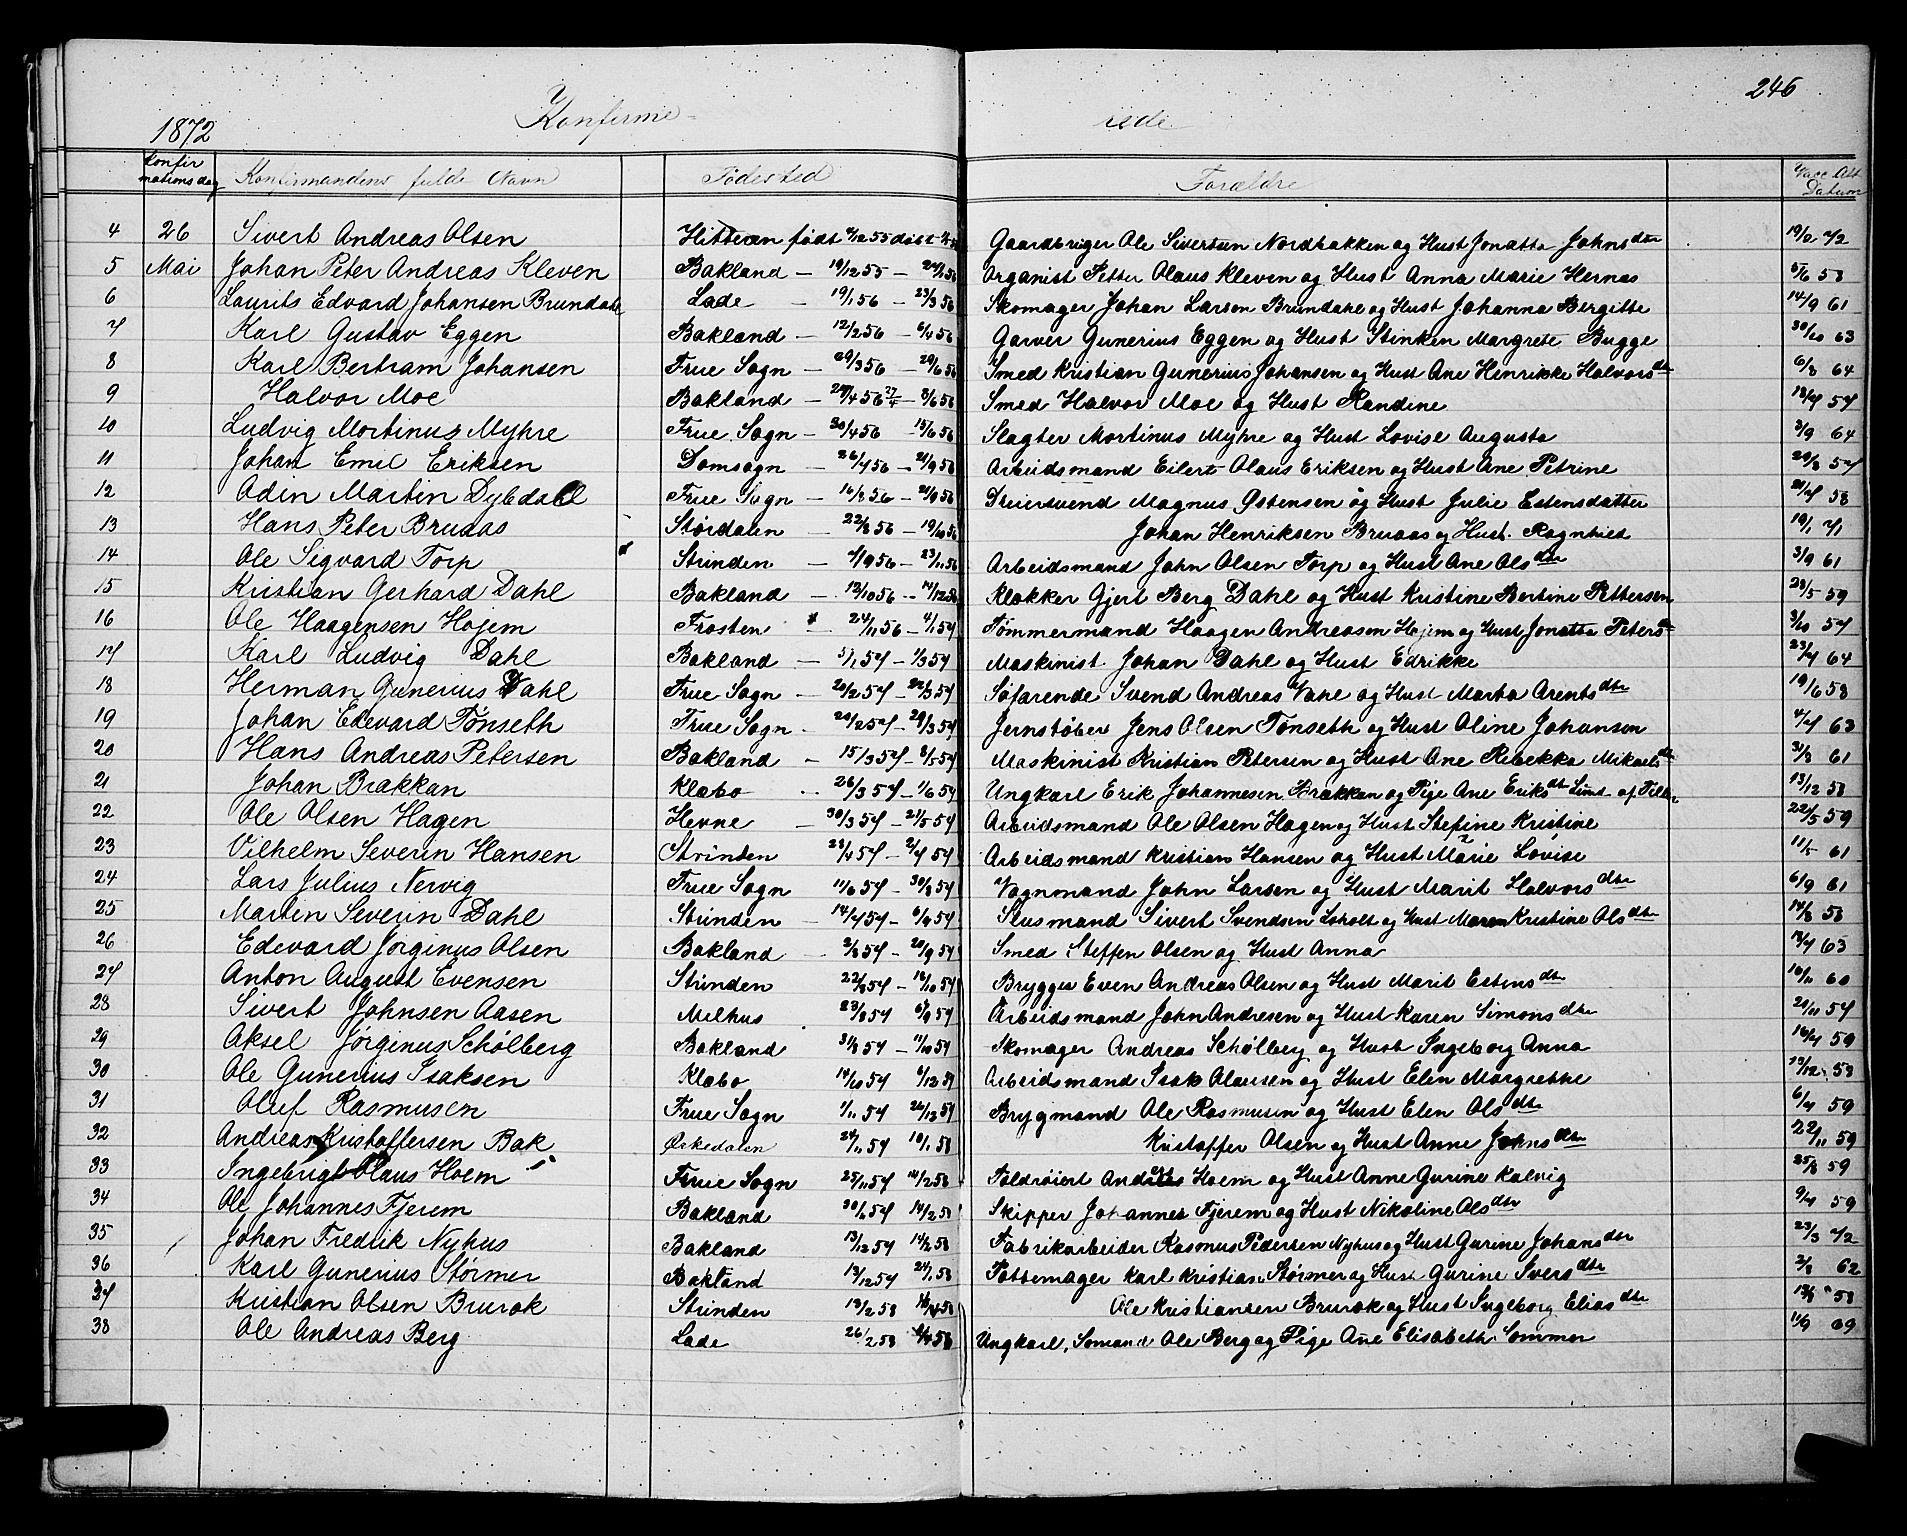 246
1872 Konfirme- rede
Konfirmationsdag Konfirmandens fulde Navn Fødested Forældre Vacc Att Datum
4 26 Sivert Andreas Olsen Hitteren født 4/12 55 døbt Gaardbruger Ole Sivertsen Nordbakken og Hust Jonetta Johnsdtr 19/2 72
5 Mai Johan Peter Andreas Kleven Bakland — 19/12 55 — 24/2 56 Organist Petter Olaus Kleven og Hust Anna Marie Hernas 5/6 58
6 Laurits Edvard Johansen Brundahl Lade — 19/1 56 — 23/3 56 Skomager Johan Larsen Brundahl og Hust Johanna Bergitte 14/9 61
7 Karl Gustav Eggen Bakland — 12/2 56 — 6/4 56 Garver Gunerius Eggen og Hust Stinken Margrete Bugge 30/10 63
8 Karl Bertram Johansen Frue Sogn — 29/3 56 29/6 56 Smed Kristian Gunerius Johansen og Hust Ane Henrikke Halvorsdtr 6/8 64
9 Halvor Moe Bakland — 28/4 56 27/4 — 8/6 56 Smed Halvor Moe og Hust Randine 13/7 57
10 Ludvig Mortinus Myhre Frue Sogn — 30/4 56 15/6 56 Slagter Mortinus Myhre og Hust Lovise Augusta 2/9 64
11 Johan Emil Eriksen Domsogn — 26/7 56 — 21/9 56 Arbeidsmand Eilert Olaus Eriksen og Hust Ane Petrine 20/8 57
12 Adin Martin Dybdahl Frue Sogn — 16/8 56 — 21/9 56 Dreiersvend Magnus Østensen og Hust Julie Estensdatter 21/7 58
13 Hans Peter Bruaas Størdalen — 22/8 56 — 19/10 56 Johan Henriksen Bruaas og Hust. Ragnhild 19/1 71
14 Ole Sigvard Torp Strinden — 4/9 56 — 23/11 56 Arbeidsmand John Olsen Torp og Hust Ane Olsdtr 3/9 61
15 Kristian Gerhard Dahl Bakland — 12/10 56 — 14/12 56 Klokker Gjert Berg Dahl og Hust Kristine Bertine Pettersen 23/5 59
16 Ole Haagensen Højem Frosten 24/11 56 — 4/1 57 Tømmermand Haagen Andreasen Højem og Hust Jonetta Petersdtr 3/10 57
17 Karl Ludvig Dahl Bakland — 5/1 57 — 1/3 57 Maskinist Johan Dahl og Hust Edrikke 23/7 64
18 Herman Gunerius Vahl Frue Sogn — 20/2 57 — 22/3 57 Søfarende Svend Andreas Vahl og Hust Marta Arentsdtr 19/6 58
19 Johan Edevard Tønseth Frue Sogn 20/2 57 — 29/3 57 Jernstøber Jens Olsen Tønseth og Hust Oline Johansen 4/7 63
20 Hans Andreas Petersen Bakland — 15/3 57 — 8/5 57 Maskinist Kristian Petersen og Hust Ane Rebekka Mikaelsdtr 31/8 61
21 Johan Brækkan Klæbo 26/3 57 — 1/6 57 Ungkarl Erik Johannesen Brækken og Pige Ane Eriksdtr af Tiller 13/12 58
22 Ole Olsen Hagen Hevne — 30/3 57 — 21/5 57 Arbeidsmand Ole Olsen Hagen og Hust Stefine Kristine 22/5 59
23 Vilhelm Severin Hansen Strinden 23/4 57 — 2/7 57 Arbeidsmand Kristian Hansen og Hust Marie Lovise 11/5 61
24 Lars Julius Nervig Frue Sogn 11/6 57 — 30/8 57 Vognmand John Larsen og Hust Marit Halvorsdtr 6/9 61
25 Martin Severin Dahl Strinden — 14/7 57 — 6/9 57 Slusmand Sivert Svendsen og Hust Maren Kristine Olsdtr 14/8 58
26 Edevard Jørginus Olsen Bakland 2/8 57 — 20/9 57 Smed Steffen Olsen og Hust Anna 13/7 63
27 Anton August Evensen Strinden 22/8 57 — 18/10 57 Brygger Even Andreas Olsen og Hust Marit Estensdtr 16/11 60
28 Sivert Johnsen Aasen Melhus 23/8 57 6/9 57 Arbeidsmand John Andresen og Hust Karen Simonsdtr 20/11 57
29 Aksel Jørginus Schølberg Bakland 31/8 57 — 11/10 57 Skomager Andreas Schølberg og Hust Ingeborg Anna 16/7 59
30 Ole Gunerius Isaksen Klæbo 14/10 57 6/12 57 Arbeidsmand Isak Olausen og Hust Elen Margrethe 13/12 58
31 Oluf Rasmusen Frue Sogn 1/11 57 26/12 57 Brygmand Ole Rasmusen og Hust Elen Olsdtr 6/7 59
32 Andreas Kristoffersen Bak Ørkedalen 24/11 57 10/1 58 Kristoffer Olsen og Hust Anne Johnsdtr 22/11 59
33 Ingebrigt Olaus Hoem Frue Sogn 25/11 57 14/2 58 Toldrøiert Andreas Hoem og Hust Anne Gurine Kalvig 25/8 59
34 Ole Johannes Fjerem Bakland 14/2 58 Skipper Johannes Fjerem og Hust Nikoline Olsdtr 9/7 59
35 Johan Fredrik Nyhus Bakland 13/12 57 14/2 58 Fabrikarbeider Rasmus Pedersen Nyhus og Hust Gurine Johansdtr 23/3 72
36 Karl Gunerius Størmer Bakland 13/12 57 24/1 58 Pottemager Karl Kristian Størmer og Hust Gurine Iversdtr 2/8 62
37 Kristian Olsen Brurok Strinden 13/2 58 Ole Kristiansen Brurok og Hust Ingeborg Eliasdtr 58
38 Ole Andreas Berg Lade 26/2 58 Ungkarl, Sømand Ole Berg og Pige Ane Elisabeth Sommer 11/9 69